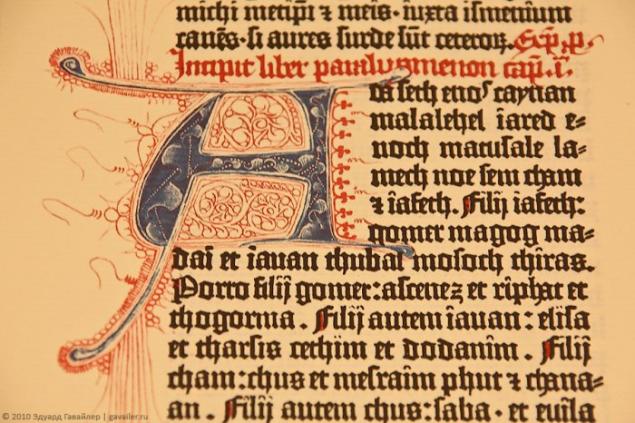 michi metip̄i ⁊ meis· iuxta ismenium
canēs· si aures surde sūt ceteroꝝ. Exp. p.
Incipit liber paralypmenon cap. i.
Adā seth enos caynan
malalehel iared e-
noch matusale la-
mech noe sem cham
⁊ iafeth. Filij iafeth:
gomer magog ma-
dai et iauan thubal mosoch thiras.
Porro filij gomer: ascenez et riphat et
thogorma. Filij autem iauan: elisa
et tharsis cethim et dodanim. Filij
cham: chus et mesraim phut ⁊ chana-
an. Filij autem chus: saba· et euila
© 2010 Эдуард Гавайлер | gavailer.ru